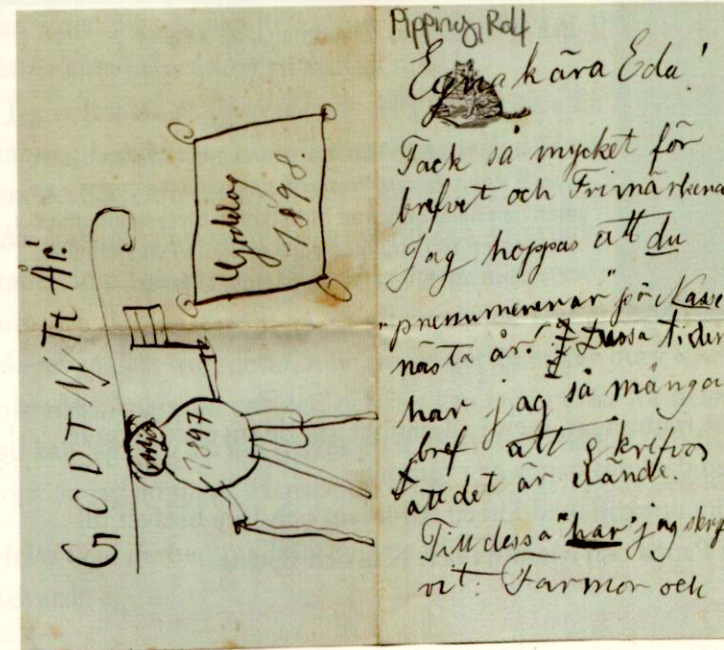 GODT NyTt År!
Goddag
1898.
1897
Pipping, Rolf
Egna kära Eda!
Tack så mycket för
brefvet och Frimärkena
Jag hoppas att du
"prenumererar" för Kasse
nästa år! Dessa tider
har jag så många
bref att skrifva
att det är elände.
Till dessa "har" jag skrif
vit: Farmor och